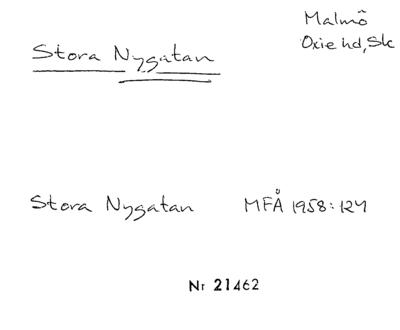 Malmö
Oxie hd, Sk
Stora Nygatan
Stora Nygatan MFÅ 1958:124
Nr 21462